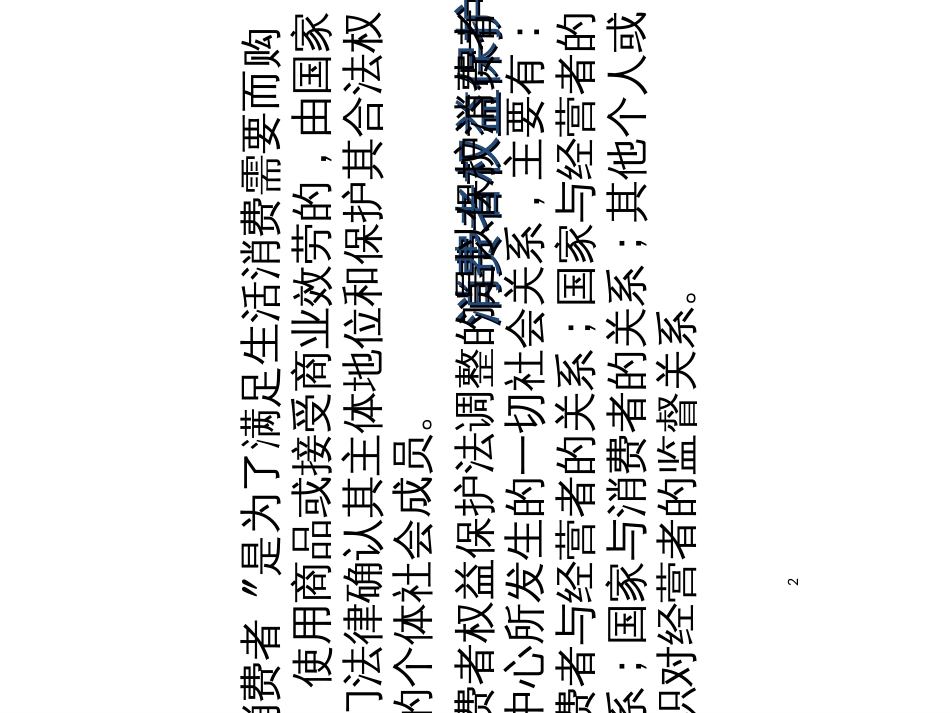 费者〞是为了满足生活消费需要而购
使用商品或接受商业效劳的，由国家
门法律确认其主体地位和保护其合法权
的个体社会成员。
消费者权益保护
费者权益保护法调整的是以保护消费者
中心所发生的一切社会关系，主要有：
费者与经营者的关系；国家与经营者的
系；国家与消费者的关系；其他个人或
只对经营者的监督关系。
2